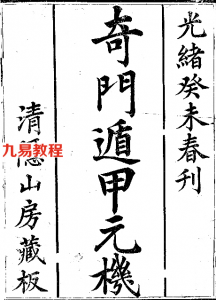 光緒癸未春刊
奇門遁甲元機
清隱山房藏板
九易教程